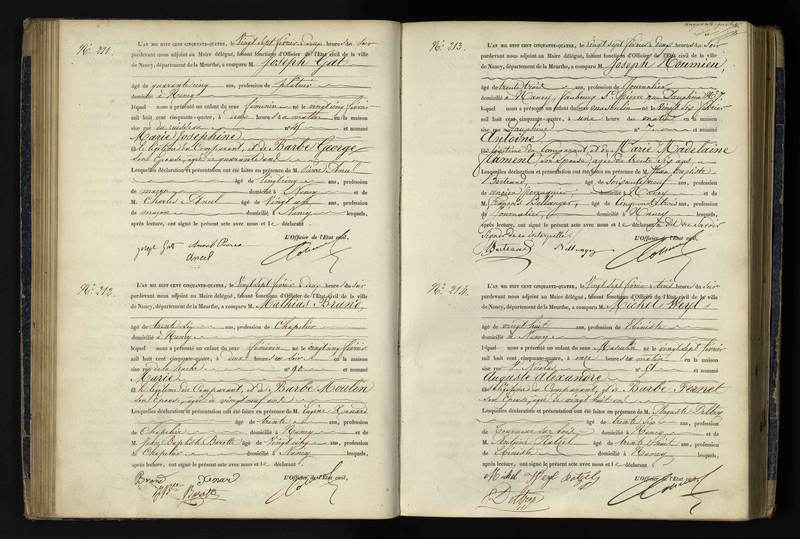 N.° 211.
L'AN MIL HUIT CENT CINQUANTE-QUATRE, le vingt sept février à deux heures du soir
pardevant nous adjoint au Maire délégué, faisant fonctions d'Officier de l'Etat civil de la ville
de Nancy, département de la Meurthe, a comparu M. Joseph Gat
âgé de quarante cinq ans, profession de plâtrier
domicilié à Nancy
lequel nous a présenté un enfant du sexe féminin né le vingt cinq février
mil huit cent cinquante-quatre, à heures du matin en la maison
sise rue N.° et nommé
Marie Joséphine
Fille légitime du Comparant, et de Barbe George
son Epouse, âgée de quarante ans
Lesquelles déclaration et présentation ont été faites en présence de M. Pierre Ancel
âgé de vingt cinq ans, profession
de maçon domicilié à Nancy et de
M. Charles Ancel âgé de vingt ans, profession
de maçon domicilié à Nancy lesquels,
après lecture, ont signé le présent acte avec nous et le déclarant.
L'Officier de l'Etat civil,
Joseph Gat Ancel Pierre
Ancel
N.° 212.
L'AN MIL HUIT CENT CINQUANTE-QUATRE, le vingt sept février à deux heures du soir
pardevant nous adjoint au Maire délégué, faisant fonctions d'Officier de l'Etat civil de la ville
de Nancy, département de la Meurthe, a comparu M. Mathias Brand,
âgé de trente six ans, profession de Chapelier
domicilié à Nancy
lequel nous a présenté un enfant du sexe féminin né le vingt cinq février
mil huit cent cinquante-quatre, à heures du soir en la maison
sise rue N.° 90 et nommé
Marie
Fille légitime du Comparant, et de Barbe Moulin
son Epouse, âgée de vingt neuf ans
Lesquelles déclaration et présentation ont été faites en présence de M. Eugène
âgé de trente ans, profession
de Chapelier domicilié à Nancy et de
M. Jean Baptiste âgé de vingt ans, profession
de Chapelier domicilié à Nancy lesquels,
après lecture, ont signé le présent acte avec nous et le déclarant.
L'Officier de l'Etat civil,
Brand
N.° 213.
L'AN MIL HUIT CENT CINQUANTE-QUATRE, le vingt sept février à deux heures du soir
pardevant nous adjoint au Maire délégué, faisant fonctions d'Officier de l'Etat civil de la ville
de Nancy, département de la Meurthe, a comparu M. Joseph Noumien,
âgé de trente trois ans, profession de Journalier
domicilié à Nancy, faubourg St Pierre rue Dauphine N.° 7.
lequel nous a présenté un enfant du sexe masculin né le vingt six février
mil huit cent cinquante-quatre, à une heure du matin en la maison
sise rue Dauphine N.° 7 et nommé
Antoine
Fils légitime du comparant et de Marie Madelaine
Flament son épouse âgée de trente six ans,
Lesquelles déclaration et présentation ont été faites en présence de M. Jean Baptiste
Bertrand, âgé de soixante neuf ans, profession
de ancien domicilié à Nancy et de
M. Bellanger, âgé de cinquante trois ans, profession
de Journalier, domicilié à Nancy lesquels,
après lecture, ont signé le présent acte avec nous et le déclarant a dit ne savoir
signer de ce interpellé.
L'Officier de l'Etat civil,
Bertrand Bellanger
N.° 214.
L'AN MIL HUIT CENT CINQUANTE-QUATRE, le vingt sept février à trois heures du soir
pardevant nous adjoint au Maire délégué, faisant fonctions d'Officier de l'Etat civil de la ville
de Nancy, département de la Meurthe, a comparu M. Michel Weyl
âgé de vingt huit ans, profession de Ebéniste
domicilié à Nancy
lequel nous a présenté un enfant du sexe Masculin né le vingt sept février
mil huit cent cinquante-quatre, à onze heures du matin en la maison
sise rue St Nicolas N.° 51 et nommé
Auguste Alexandre
Fils légitime du Comparant, et de Barbe Pernet
son Epouse, âgée de vingt huit ans
Lesquelles déclaration et présentation ont été faites en présence de M. Auguste
âgé de trente six ans, profession
de Tourneur sur bois domicilié à Nancy et de
M. Antoine âgé de trente huit ans, profession
de Ebéniste domicilié à Nancy lesquels,
après lecture, ont signé le présent acte avec nous et le déclarant.
L'Officier de l'Etat civil,
Michel Weyl